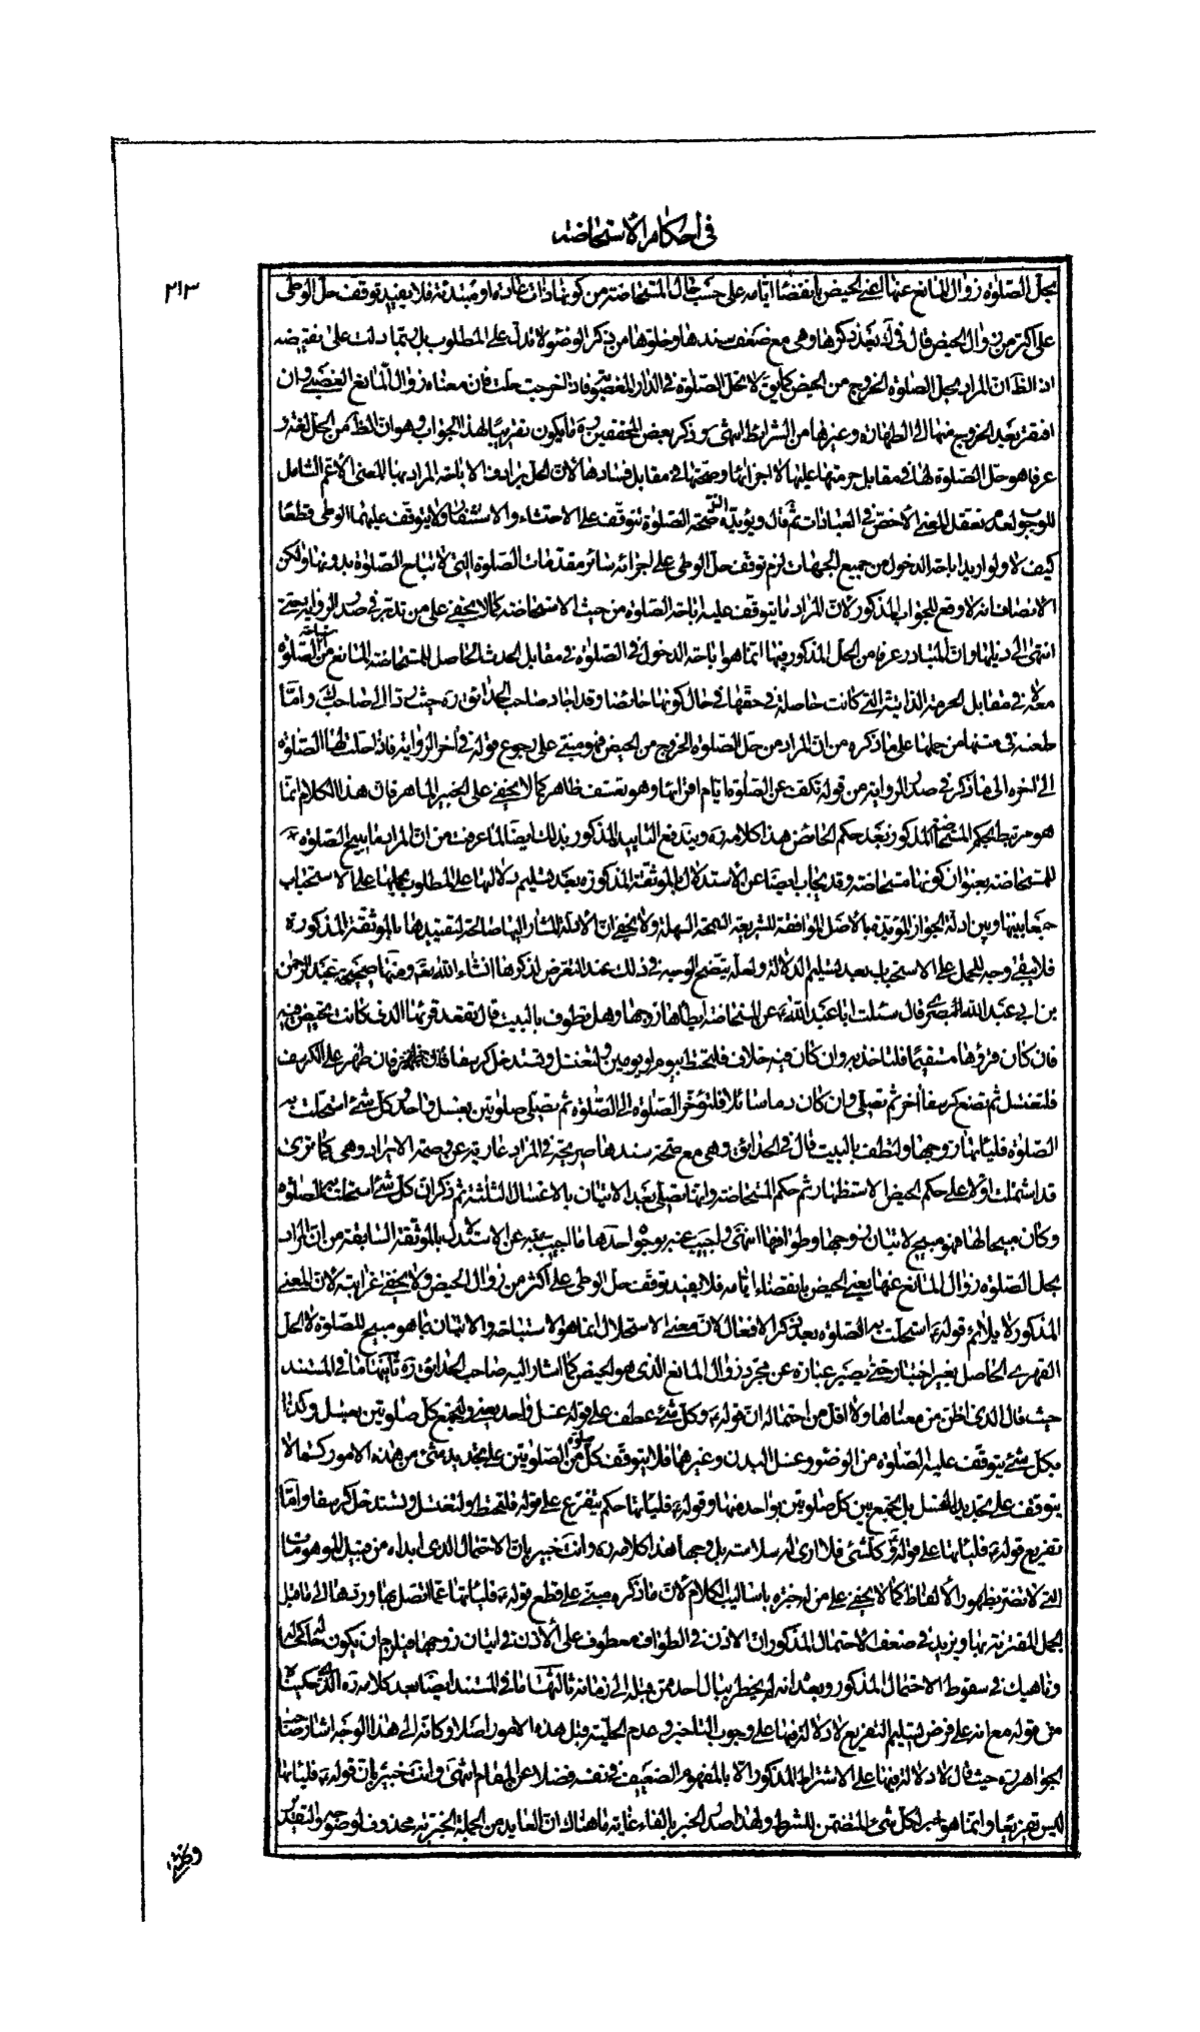 في احكام الاستحاضة
٢١٣
بحل الصّلوة زوال المانع عنها اعنى الحيض بانقضاء ايّامه على حسب حال المستحاضة من كونها ذات عادة او مبتدئة فلا يفيد توقف حل الوطى
على اكثر من زوال الحيض قال في ك بعد ذكرها وهى مع ضعف سندها وخلوها من ذكر الوضوء لا تدل على المطلوب بل ربما دلت على نقيضه
اذ الظ ان المراد بحل الصلوة الخروج من الحيض كما يق لا تحل الصلوة في الدار المغصوبة فاذا خرجت حلت فان معناه زوال المانع الغصبى وان
افتقر بعد الخروج منها الى الطهارة وغيرها من الشرائط انتهى وذكر بعض المحققين ره ما يكون تقريبا لهذا الجواب وهو ان الظ من الحل لغة و
عرفا هو حل الصلوة لها في مقابل حرمتها عليها لا اجزائها وصحتها في مقابل فسادها لان الحل يرادف الاباحة المراد بها المعنى الاعم الشامل
للوجوب لعدم تعقل المعنى الاخص في العبادات ثم قال ويؤيده ان صحة الصلوة تتوقف على الاحتشاء والاستثفار ولا يتوقف عليهما الوطى قطعا
كيف لا ولو اريد اباحة الدخول من جميع الجهات لزم توقف حل الوطى على اجزائه سائر مقدمات الصلوة التى لا تباح الصلوة بدونها ولكن
الانصاف انه لا وقع للجواب المذكور لان المراد ما يتوقف عليه اباحة الصلوة من حيث الاستحاضة كما لا يخفى على من تدبر في صدر الرواية حتى
انتهى الى ذيلها وان المتبادر عرفا من الحل المذكور فيها انما هو اباحة الدخول في الصلوة في مقابل الحدث الحاصل للمستحاضة المانع من الصلوة
معه لا في مقابل الحرمة الذاتية التى كانت حاصلة في حقها في حال كونها حائضا وقد اجاد صاحب الحدائق ره حيث رد الى صاحب ك واما
طعنه في متنها من حملها على ما ذكره من ان المراد من حل الصلوة الخروج من الحيض فهو مبنى على رجوع قوله في اخر الرواية فاذا حلت لها الصلوة
الى اخره الى ما ذكر في صدر الرواية من قوله تكف عن الصلوة ايام اقرائها وهو تعسف ظاهر كما لا يخفى على الخبير الماهر فان هذا الكلام انما
هو مرتبط بحكم المستحاضة المذكور بعد حكم الحائض هذا كلامه ره ويندفع التاييد المذكور بذلك ايضا لما عرفت من ان المراد ما يبيح الصلوة
للمستحاضة بعنوان كونها مستحاضة وقد يجاب ايضا عن الاستدلال بالموثقة المذكورة بعد تسليم دلالتها على المطلوب بحملها على الاستحباب
جمعا بينها وبين ادلة الجواز المؤيدة بالاصل الموافقة للشريعة السمحة السهلة ولا يخفى ان الادلة المشار اليها صالحة لتقييدها بالموثقة المذكورة
فلا يبقى وجه للحمل على الاستحباب بعد تسليم الدلالة ولعله يتضح الوجه في ذلك عند التعرض لذكرها انشاء الله تعم ومنها صحيحة عبد الرحمن
بن ابي عبد الله البصرى قال سئلت ابا عبد الله ع عن المستحاضة ايطاها زوجها وهل تطوف بالبيت قال تقعد قرئها الذى كانت تحيض فيه
فان كان قرؤها مستقيما فلتاخذ به وان كان فيه خلاف فلتحتط بيوم او يومين ولتغتسل وتستدخل كرسفا فان ظهر على الكرسف
فلتغتسل ثم تضع كرسفا اخر ثم تصلى وان كان دما سائلا فلتؤخر الصلوة الى الصلوة ثم تصلى صلوتين بغسل واحد وكل شئ استحلت به
الصلوة فلياتها زوجها ولتطف بالبيت قال في الحدائق وهى مع صحة سندها صريحة في المراد عارية عن وصمة الايراد وهى كما ترى
قد اشتملت اولا على حكم الحيض الاستظهار ثم حكم المستحاضة وانها تصلى بعد الاتيان بالاغسال الثلثة ثم ذكر ان كل شئ استحلت به الصلوة
وكان مبيحا لها فهو مبيح لاتيان زوجها وطوافها انتهى واجيب عنه بوجوه احدها ما اجيب به عن الاستدلال بالموثقة السابقة من ان المراد
بحل الصلوة زوال المانع عنها يعنى الحيض بانقضاء ايامه فلا يفيد توقف حل الوطى على اكثر من زوال الحيض ولا يخفى غرابته لان المعنى
المذكور لا يلائم قوله ع استحلت به الصلوة بعد ذكر الافعال لان معنى الاستحلال انما هو الاستباحة والاتيان بما هو مبيح للصلوة لا الحل
القهرى الحاصل بغير اختيار حتى يصير عبارة عن مجرد زوال المانع الذى هو الحيض كما اشار اليه صاحب الحدائق ره ثانيها ما في المستند
حيث قال الذى اظن من معناها ولا اقل من احتماله ان قوله ع وكل شئ عطف على قوله غسل واحد يعنى ولتجمع كل صلوتين بغسل وكذا
بكل شئ يتوقف عليه الصلوة من الوضوء وغسل البدن وغيرها فلا يتوقف كل من الصلوتين على تجديد شئ من هذه الامور كما لا
يتوقف على تجديد الغسل بل تجمع بين كل صلوتين بواحد منها وقوله ع فلياتها حكم يتفرع على قوله فلتحتط ولتغتسل وتستدخل كرسفا واما
تفريع قوله ع فلياتها على قوله وكلشئ فلا ارى له سلامة بل وجها هذا كلامه ره وانت خبير بان الاحتمال الذى ابداه من قبيل الموهومات
التى لا تضر بظهور الالفاظ كما لا يخفى على من له خبرة باساليب الكلام لان ما ذكره مبنى على قطع قوله ع فلياتها عما اتصل بها وردها الى ما قبل
الجمل المقترنة بها ويزيد في ضعف الاحتمال المذكور ان الاذن في الطواف معطوف على الاذن في اتيان زوجها فيلزم ان يكون
وناهيك في سقوط الاحتمال المذكور وبعد انه لم يخطر ببال احد ممن قبله الى زمانه ثالثها ما في المستند ايضا بعد كلامه ره الذى حكيناه
من قوله مع انه على فرض تسليم التفريع لا دلالة فيها على وجوب التاخير وعدم الحلية قبل هذه الامور اصلا وكانه الى هذا الوجه اشار صاحب
الجواهر ره حيث قال لا دلالة فيها على الاشتراط المذكور الا بالمفهوم الضعيف في نفسه فضلا عن المقام انتهى وانت خبير بان قوله ع فلياتها
ليس تفريعا وانما هو خبر لكل شئ المتضمن للشرط ولهذا صدر الخبر بالفاء غاية ما هناك ان العايد من الجملة الخبرية محذوف لوضوحه والتقدير